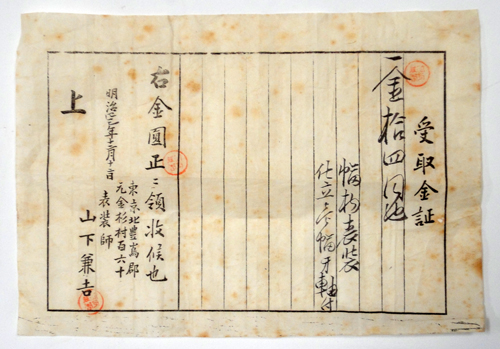 受取金証
一金拾四円也
幅物表装
仕立三幅牙軸付
右金圓正ニ領收候也
明治三年十二月十二日
東京北豊嶌郡
元金杉村百六十
表装師
山下兼吉
上